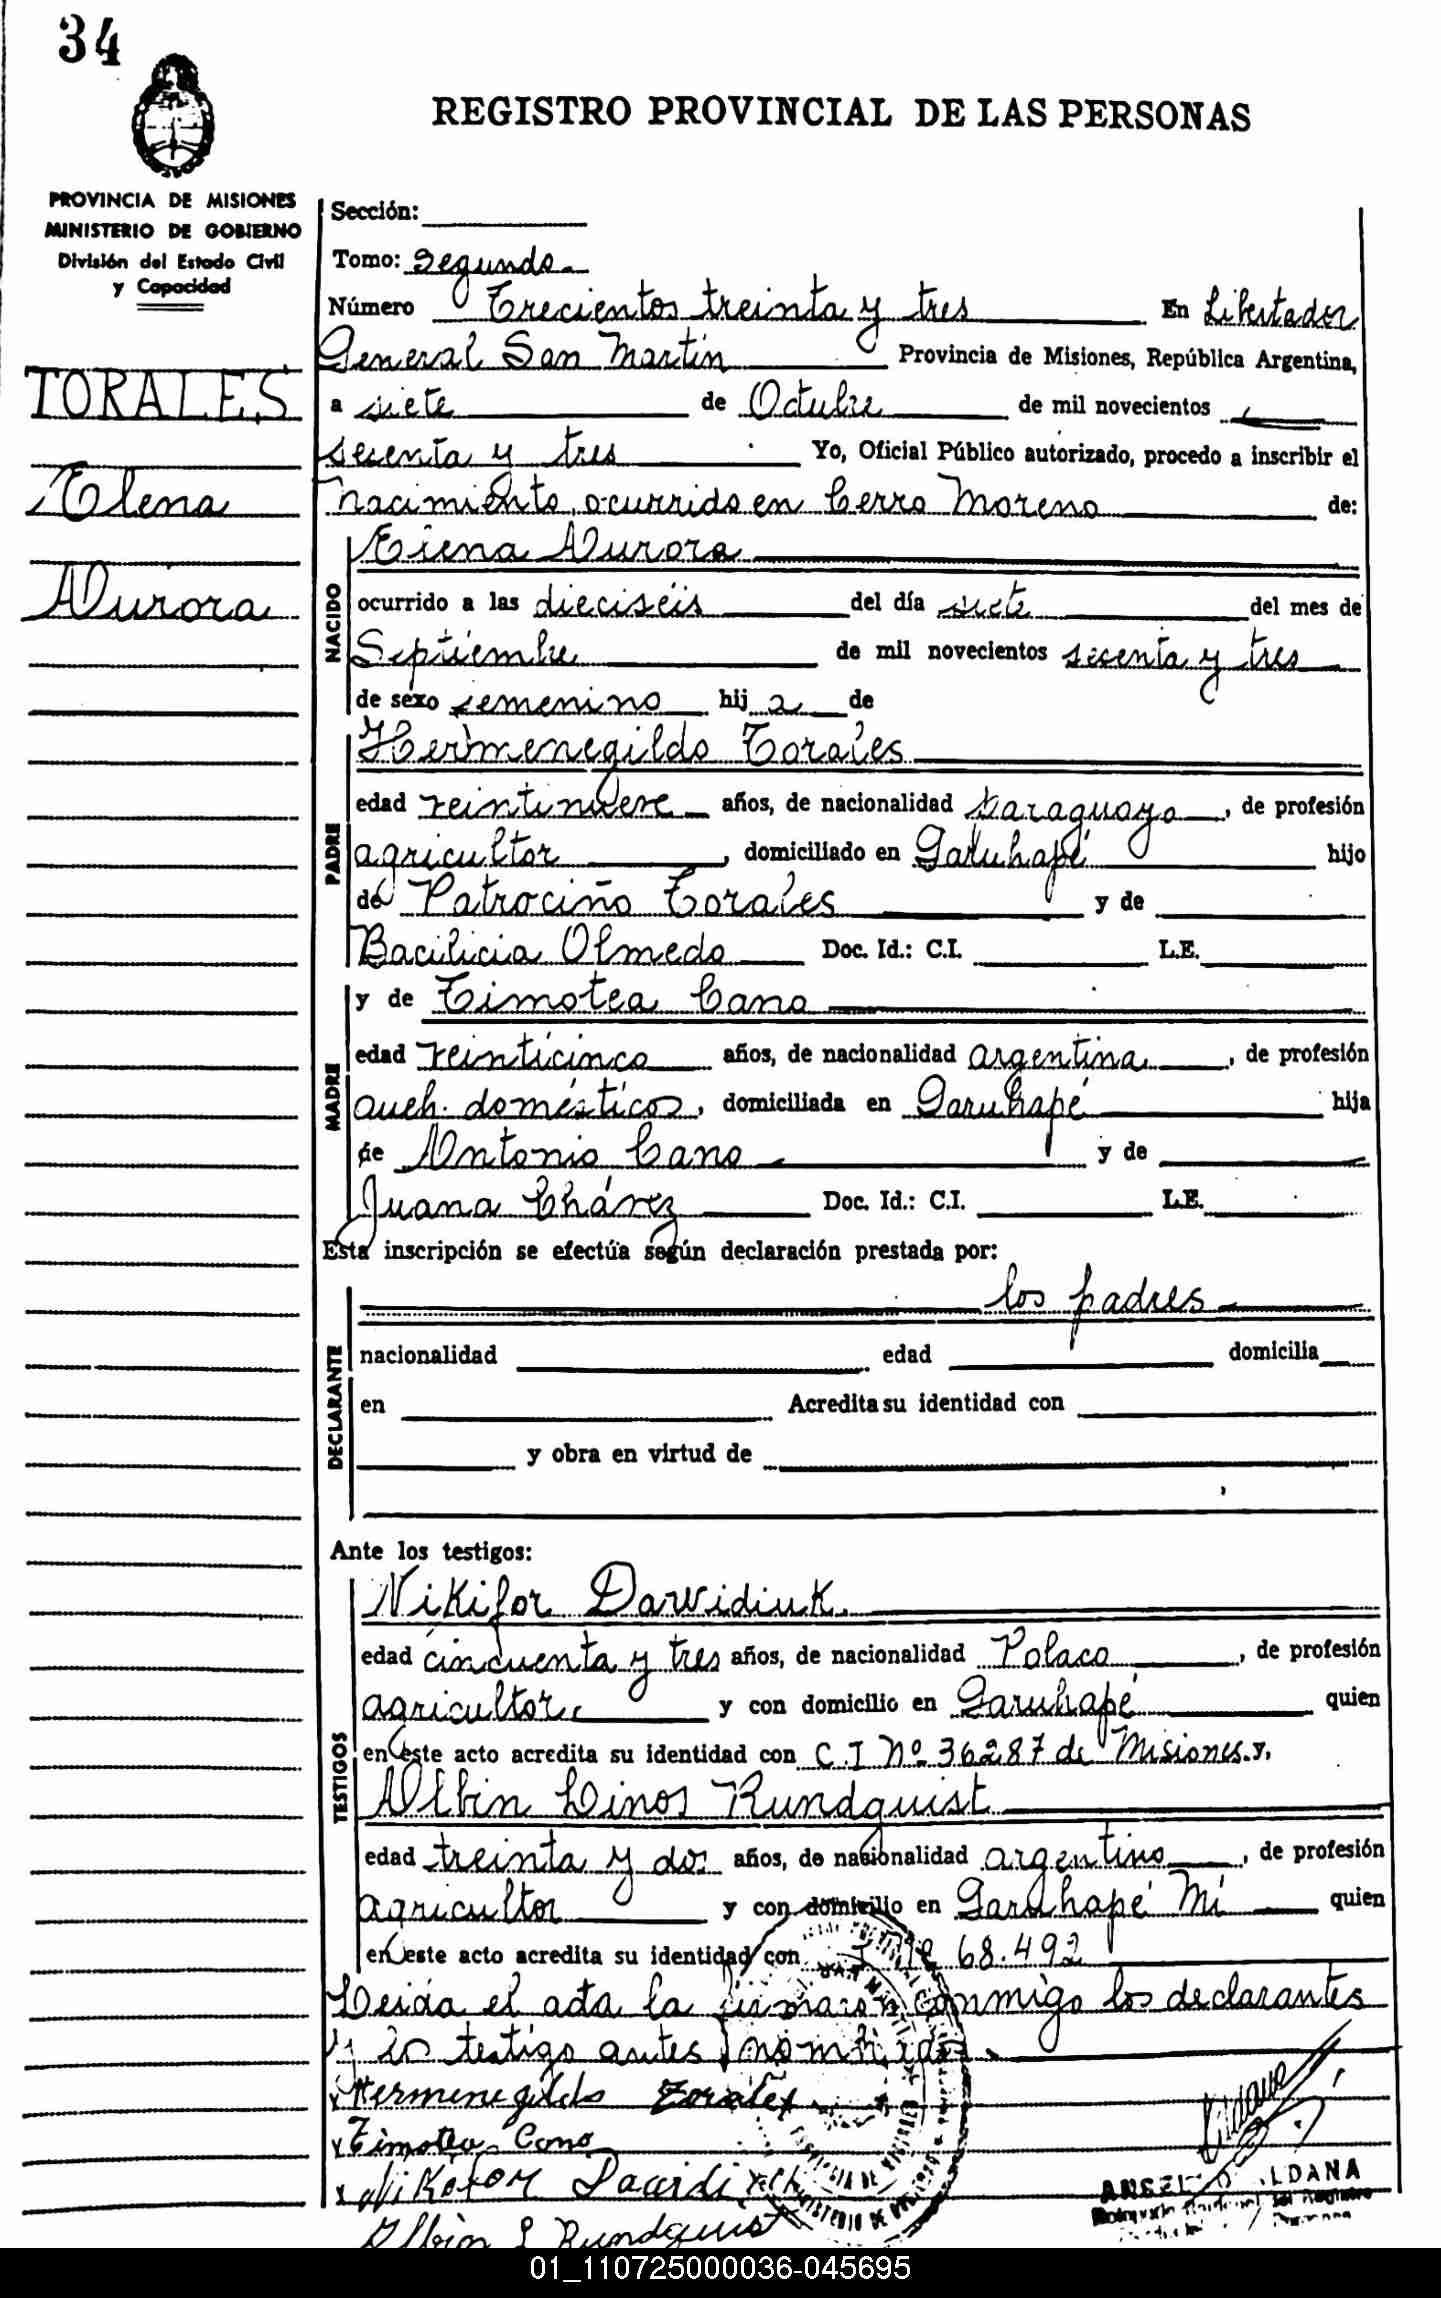 34
REGISTRO PROVINCIAL DE LAS PERSONAS
PROVINCIA DE MISIONES
MINISTERIO DE GOBIERNO
División del Estado Civil
y Capacidad
TORALES
Elena
Aurora
Sección:
Tomo: Segundo
Número Trecientos treinta y tres En Libertador
General San Martín Provincia de Misiones, República Argentina,
a siete de Octubre de mil novecientos
secenta y tres Yo, Oficial Público autorizado, procedo a inscribir el
nacimiento ocurrido en Cerro Moreno de:
NACIDO
Elena Aurora
ocurrido a las dieciséis del día siete del mes de
Septiembre de mil novecientos secenta y tres
de sexo femenino hij a de
PADRE
Hermenegildo Torales
edad veintinueve años, de nacionalidad paraguayo, de profesión
agricultor, domiciliado en Garuhapé hijo
de Patrociño Torales y de
Bacilicia Olmedo Doc. Id.: C.I. L.E.
MADRE
y de Timotea Cano
edad veinticinco años, de nacionalidad argentina, de profesión
queh. domésticos, domiciliada en Garuhapé hija
de Antonio Cano y de
Juana Chávez Doc. Id.: C.I. L.E.
Esta inscripción se efectúa según declaración prestada por:
DECLARANTE
los padres
nacionalidad edad domicilia
en Acredita su identidad con
y obra en virtud de
Ante los testigos:
TESTIGOS
Nikifor Dawidiuk
edad cincuenta y tres años, de nacionalidad Polaco, de profesión
agricultor y con domicilio en Garuhapé quien
en este acto acredita su identidad con C.I Nº 36287 de Misiones y,
Albin Linos Rundquist
edad treinta y dos años, de nacionalidad argentino, de profesión
agricultor y con domicilio en Garuhapé Mí quien
en este acto acredita su identidad con 68.492
Leida el acta la firmaron conmigo los declarantes
y lo testigo antes nombrados.
x Hermenegildo Torales
x Timotea Cano
x Nikifor
Albin L Rundquist
LDANA
01_110725000036-045695